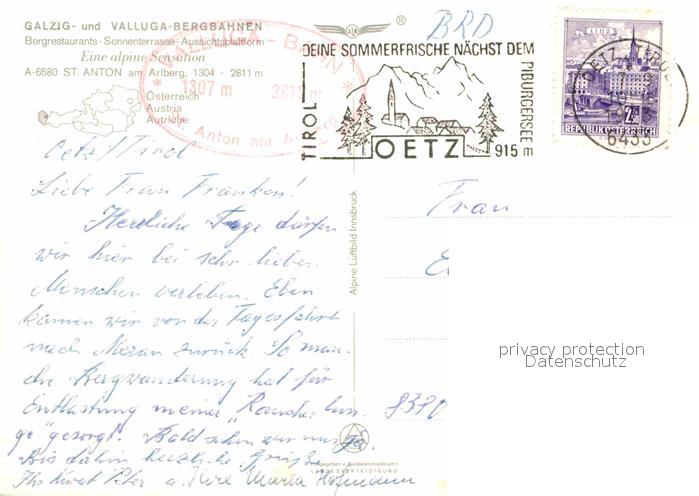 GALZIG- und VALLUGA-BERGBAHNEN
Bergrestaurants - Sonnenterrasse - Aussichtsplattform
Eine alpine Sensation
A-6580 ST. ANTON am Arlberg, 1304 - 2811 m
Österreich
Austria
Autriche
VALLUGA - BAHN
1307 m 2811 m
St. Anton am Arlberg
®
BRD
DEINE SOMMERFRISCHE NÄCHST DEM
PIBURGERSEE
TIROL
OETZ
915 m
LINZ
2S
REPUBLIK ÖSTERREICH
OETZ, TIROL
6433
Oetz/Tirol
Liebe Frau Franken!
Herzliche Tage dürfen
wir hier bei sehr lieben
Menschen verleben. Eben
kamen wir von der Tagesfahrt
nach Meran zurück. So man-
che Bergwanderung hat für
Entlastung meiner "Raucherlun-
ge" gesorgt. Bald sehn wir uns ja.
Bis dahin herzliche Grüße
Ihr Peter u. Ihre Maria Hofmann
Alpine Luftbild Innsbruck
Frau
E
8380
privacy protection
Datenschutz
Freigegeben v. Bundesministerium f.
LANDESVERTEIDIGUNG